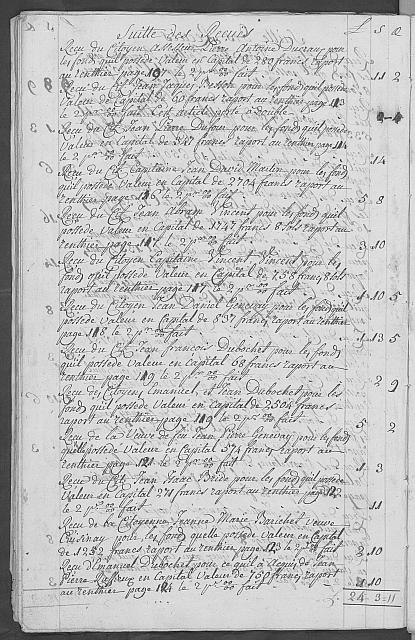 Suitte des Recus L S D
Recu du Citoyen Assesseur Pierre Antoine Ducraux pour
les fond quil possede Valeur en Capital de 280 francs raport
au renthier page 101 le 2 pr ‰ fait 11 2
Recu du Ct Jean Jaques Besson pour les fond quil possede
Valeur de Capital de 60 francs raport au renthier page 113
le 2 pr ‰ fait c'est article porté à double
Recu du Ct Jean Pierre Dufour pour les fonds quil possede
Valeur en Capital de 347 francs raport au renthier page 114
le 2 pr ‰ fait 14
Recu du Ct Capitaine Jean David Martin pour les fond
quil possede Valeur en Capital de 2704 francs raport au
renthier page 116 le 2 pr ‰ fait 5 8
Recu du Ct Jean Abram Vincent pour les fonds quil
possede Valeur en Capital de 1747 francs 8 sols raport au
renthier page 117 le 2 pr ‰ fait 3 10
Recu du Citoyen Capitaine Vincent Vincent pour les
fond quil possede Valeur en Capital de 758 francs 8 sols
raport au renthier page 117 le 2 pr ‰ fait 1 10 5
Recu du Citoyen Jean Daniel Genevay pour les fond quil
possede Valeur en Capital de 837 francs raport au renthier
page 118 le 2 pr ‰ fait 1 13 5
Recu du Ct Jean françois Dubochet pour les fonds
quil possede Valeur en Capital 68 francs raport au
renthier page 119 le 2 pr ‰ fait 2 9
Recu des Citoyens Emanuel, et Jean Dubochet pour les
fond quil possede Valeur en Capital de 2504 francs
raport au renthier page 119 le 2 pr ‰ fait 5 2
Recu de la Veuve de feu Jean Pierre Genevay pour les fond
quelle possede Valeur en Capital 574 francs raport au
renthier page 121 le 2 pr ‰ fait 1 3
Recu du Ct Jean Isaac Bride pour les fond quil possede
Valeur en Capital 271 francs raport au renthier page 122
le 2 pr ‰ fait 11
Recu de la Citoyenne Jeanne Marie Barichet veuve
Cuisinay pour les fond quelle possede Valeur en Capital
de 1252 francs raport au renthier page 123 le 2 pr ‰ fait 2 10
Recu d'Emanuel Dubochet pour ce quil à Acquis de Jean
Pierre en Capital Valeur de 750 francs raport
au renthier page 124 le 2 pr ‰ fait 1 10
24 - 3 - 11